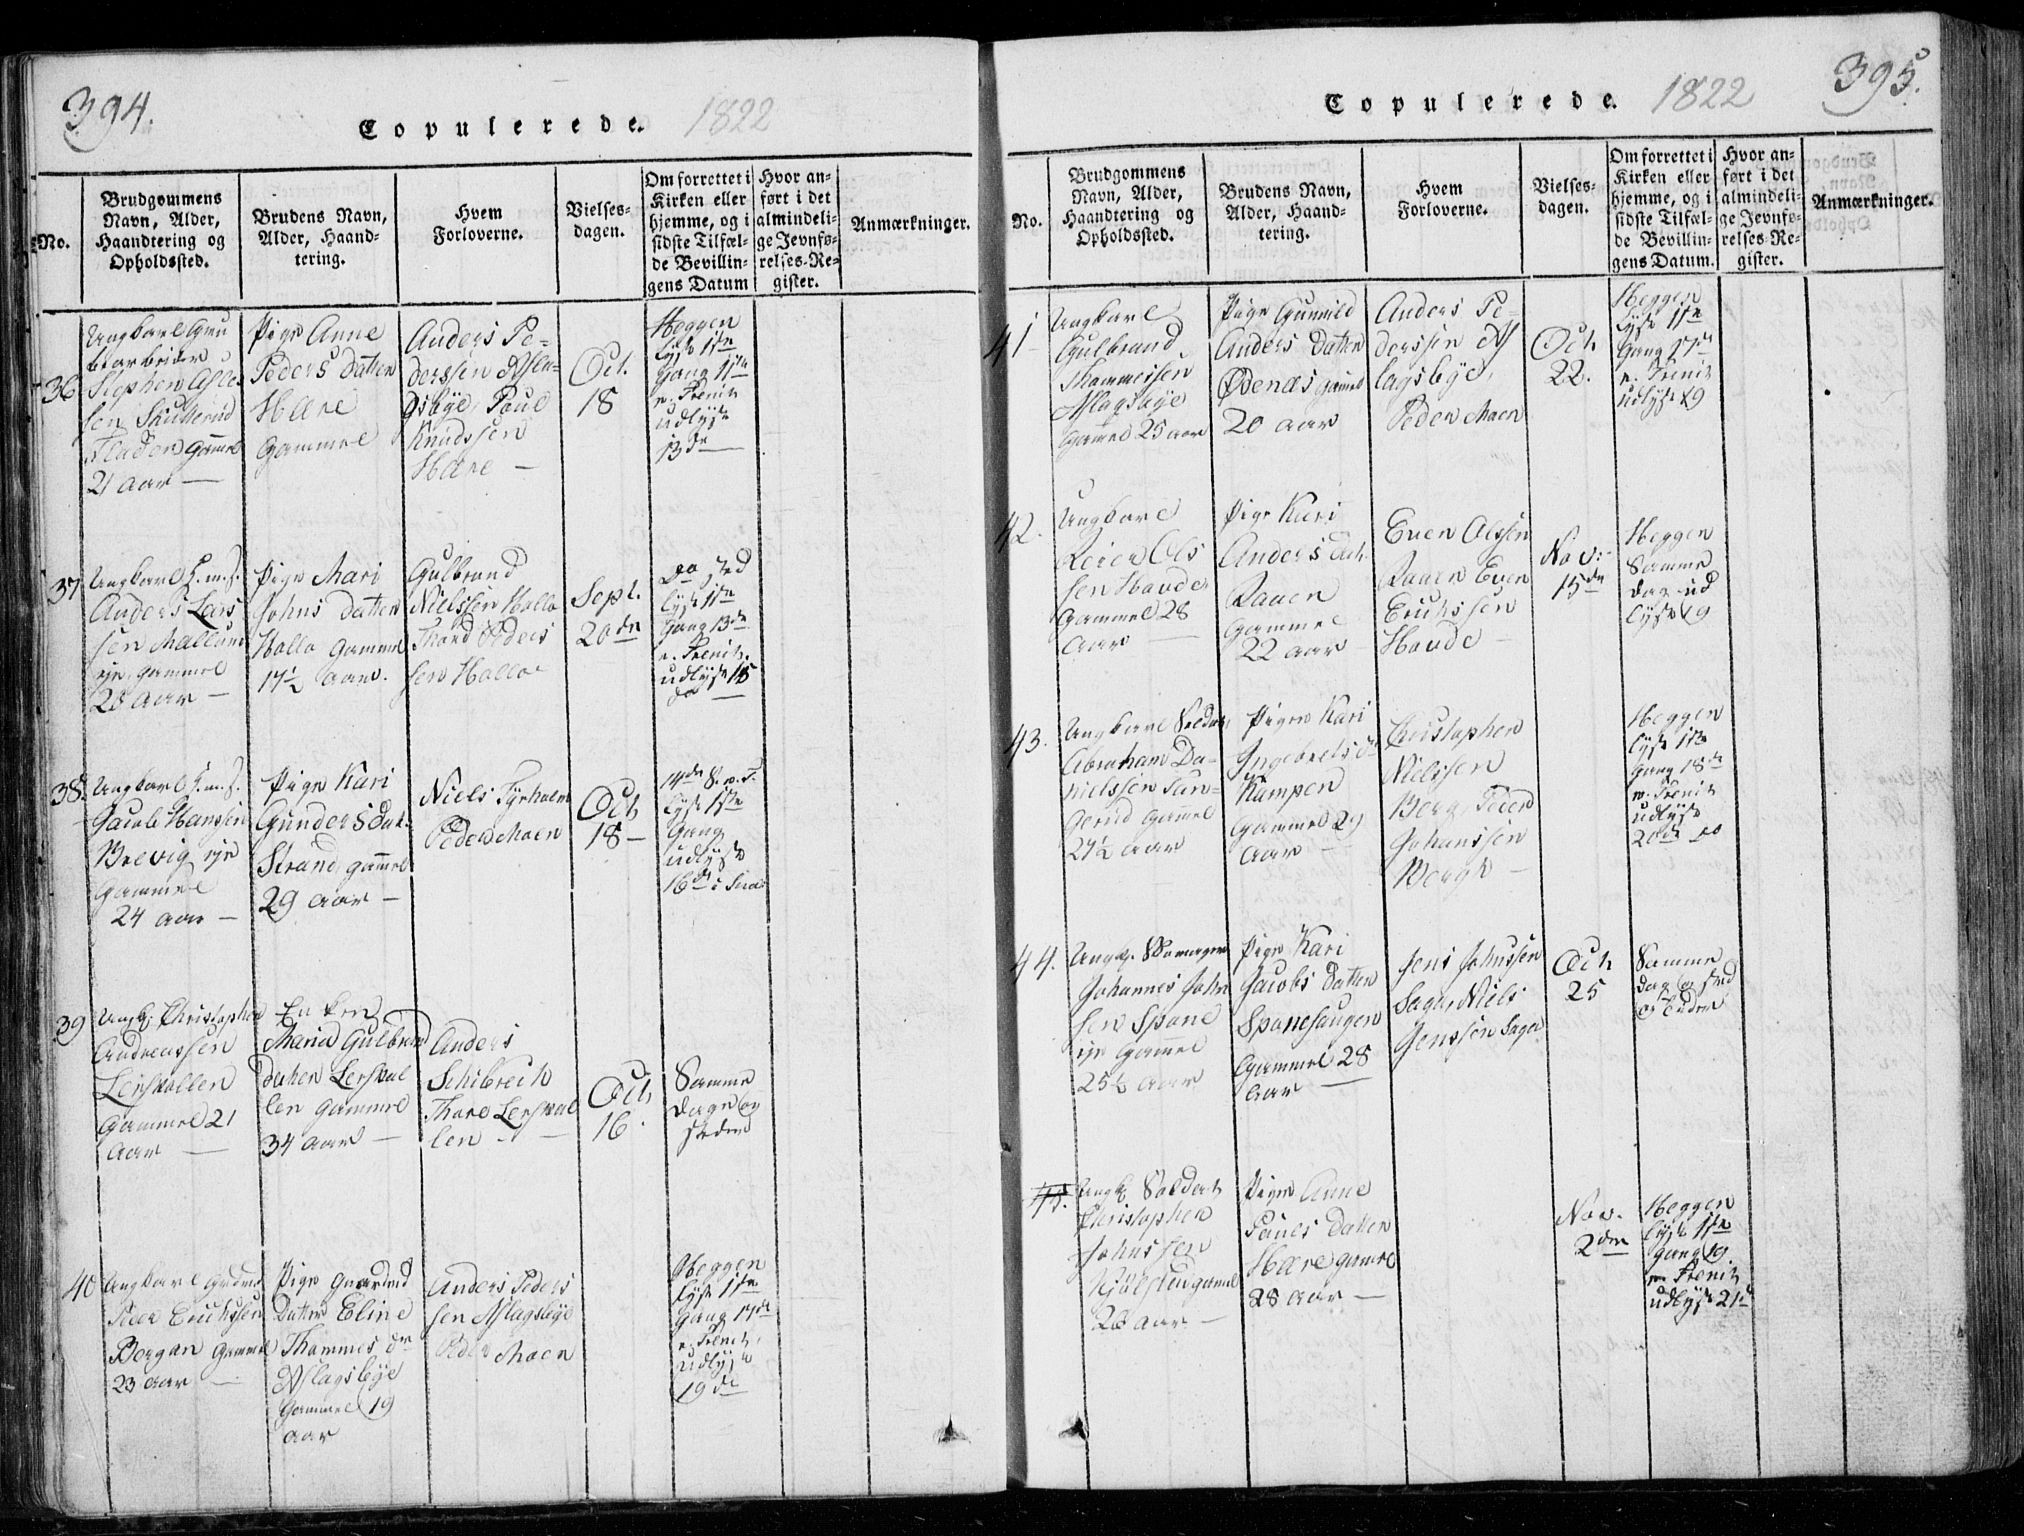 394.
Copulerede. 1822
No.
Brudgommens
Navn, Alder,
Haandtering og
Opholdssted.
Brudens Navn,
Alder, Haand-
tering.
Hvem
Forloverne.
Vielses-
dagen.
Om forrettet i
Kirken eller
hjemme, og i
sidste Tilfæl-
de Bevillin-
gens Datum
Hvor an-
ført i det
almindeli-
ge Jevnfø-
relses-Re-
gister.
Anmærkninger.
36
Ungkarl
Stephen
21 aar
Pige Anne
Peders Datter
Hære
Gammel
Anders Pe-
derssen
Poul
Knudssen
Hære
Oct.
18
Heggen
lyst 1ste
Gang 11te
p. Trenit
udlyst
13de
37
Ungkarl
Anders Lars
sen
gammel
aar
Pige Mari
Johns Datter
Holla Gammel
17½ aar.
Gulbrand
Nielssen Holla
Thord Peders
sen Holla
Sept.
20de
Do sted
lyst 1ste
Gang 13de
p. Trenit.
udlyst 15
do
38.
Ungkarl
Jacob Hanssen
Brevig eje
Gammel
24 aar
Pige Kari
Gunders Dat.
Strand gammel
29 aar
Niels Tyrholm
Peder Moen
Oct
18
14de S. p. T.
lyst 1ste
Gang
udlyst
16de i
39
Ungk. Christopher
Andreassen
Lersvollen
Gammel 21
Aar
Enken
Maria Gulbrand
datter Lersvol
len gammel
34 aar
Anders
Schibreck
Thore Lersvol
len
Oct
16.
Samme
dage og
steder
40
Ungkarl
Peer Erichssen
Bergan Gammel
23 aar
Pige
Datter Eline
Thommes dr
Aslagsbye
Gammel 19
aar
Anders Peders
sen Aslagsbye
Peder Moen
Heggen
lyst 1ste
Gang 17de
p. Trenit,
udlyst
19de
395.
Copulerede. 1822
No.
Brudgommens
Navn, Alder,
Haandtering og
Opholdssted.
Brudens Navn,
Alder, Haand-
tering.
Hvem
Forloverne.
Vielses-
dagen.
Om forrettet i
Kirken eller
hjemme, og i
sidste Tilfæl-
de Bevillin-
gens Datum.
Hvor an-
ført i det
almindeli-
ge Jevnfø-
relses-Re-
gister.
Anmærkninger.
41
Ungkarl
Gulbrand
Thommessen
Aslagsbye
Gamel 25 aar
Pige Gunnild
Anders Datter
Ødenæs gamel
20 aar
Anders Pe-
derssen As
lagsbye,
Peder Moen
Oct
22.
Heggen
lyst 1ste
Gang 17de
p. Trenit
udlyst 19
42.
Ungkarl
Ols
sen Hovde
Gammel 28
aar
Pige Kari
Anders dat.
Raaen
Gammel
22 aar
Even Olssen
Raaen Even
Erichssen
Hovde
Nov:
15de
Heggen
Samme
dag ud
lyst 19
43.
Ungkarl Soldat
Abraham Da-
nielssen
gerud Gammel
27½ aar
Pigen Kari
Ingebrets dr
Kampen
Gammel 29
aar
Christopher
Nielssen
Berg, Peder
Johanssen
Bergh
Heggen
lyst 1ste
Gang 18de
p. Trenit
udlyst
20de do
44.
Ungk.
Johannes John
sen Spone
eje Gammel
25½ aar
Pige Kari
Jacobs Datter
Sponehaugen
Gammel 28
aar
Jens Johnssen
Niels
Jenssen
Oct
25
Samme
dag og sted
45.
Ungk. Soldat
Christopher
Johnssen
gamel
28 aar
Pigen Anne
Povels Datter
Hære gamel
28 aar
Nov.
2den
Heggen
lyst 1ste
Gang 19
p. Trenit
udlyst 21de